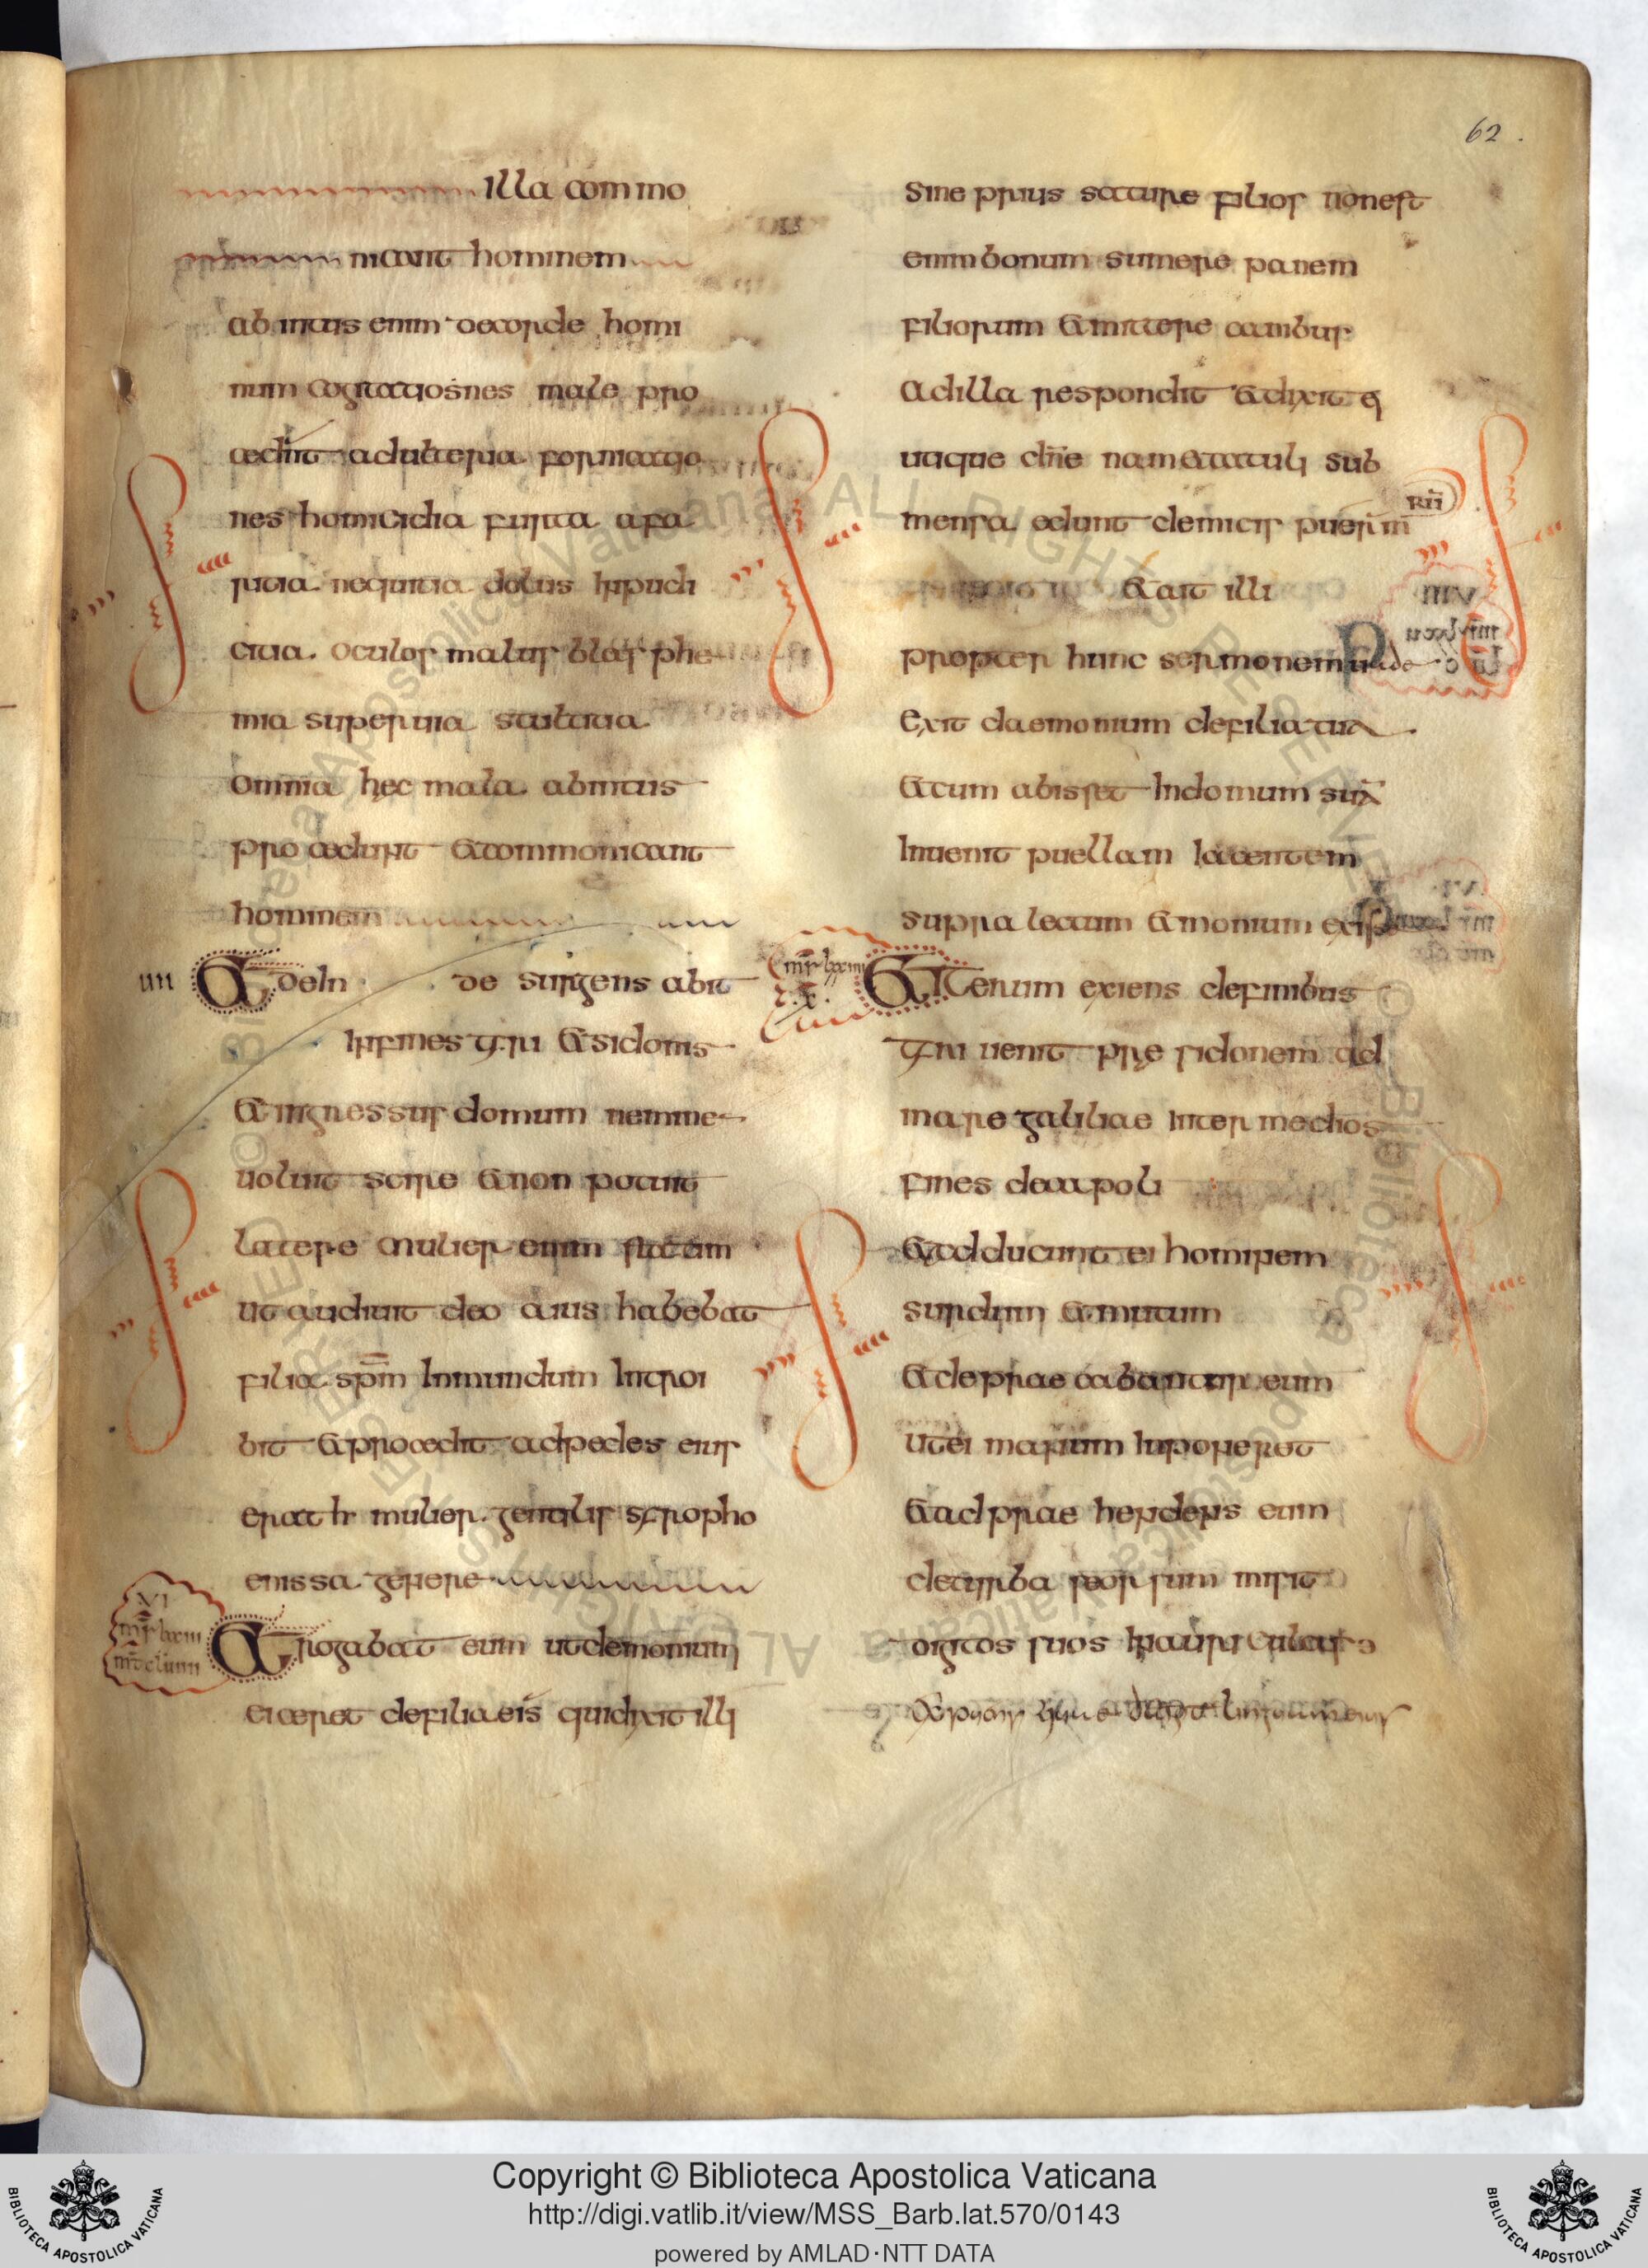 62.
illa commo
nicant hominem
ab intus enim de corde homi
num cogitatiosnes male pro
cedunt adulteria fornicatio
nes homicidia furta afa
ritia nequitia dolus inpudi
citia oculos malus blasphe
mia superuia stultitia
omnia hęc mala abintus
procedunt et commonicant
hominem
uii
Et deIn de surgens abit
In fines tyri et sidonis
et ingressus domum nemine
uoluit scire et non potuit
latere mulier enim statim
ut audiuit deo cuius habebat
filia spm̄ Inmundum Introi
bit et procedit ad pedes eius
erat h mulier gentilis syropho
enissa genere
VI
mr̄ lxiii
mt cluiii
Et rogabat eum ut demonium
eiceret de filia eis qui dixit illi
Sine prius sature filios non est
enim bonum sumere panem
filiorum et mittere canibus
Ad illa respondit et dixit ei
utique dn̄e nam et catuli sub
mensa edunt de micis puerim
et ait illi
propter hunc sermonem uade
Exit daemonium de filia tua
Et cum abisset In domum suā
Inuenit puellam Iacentem
supra lectum et monium exis
mr̄ lxxiiii
X
Et Iterum exiens de finibus
tyri uenit pre sidonem ad
mare galiliae inter medios
fines decapoli
Et adducunt ei hominem
surdum et mutum
et de praecabantur eum
ut ei manum Inponeret
Et ad prae hendens eum
de turba seorsum misit
digitos suos In
linguam eius
Copyright © Biblioteca Apostolica Vaticana
http://digi.vatlib.it/view/MSS_Barb.lat.570/0143
powered by AMLAD·NTT DATA
BIBLIOTECA APOSTOLICA VATICANA
BIBLIOTECA APOSTOLICA VATICANA